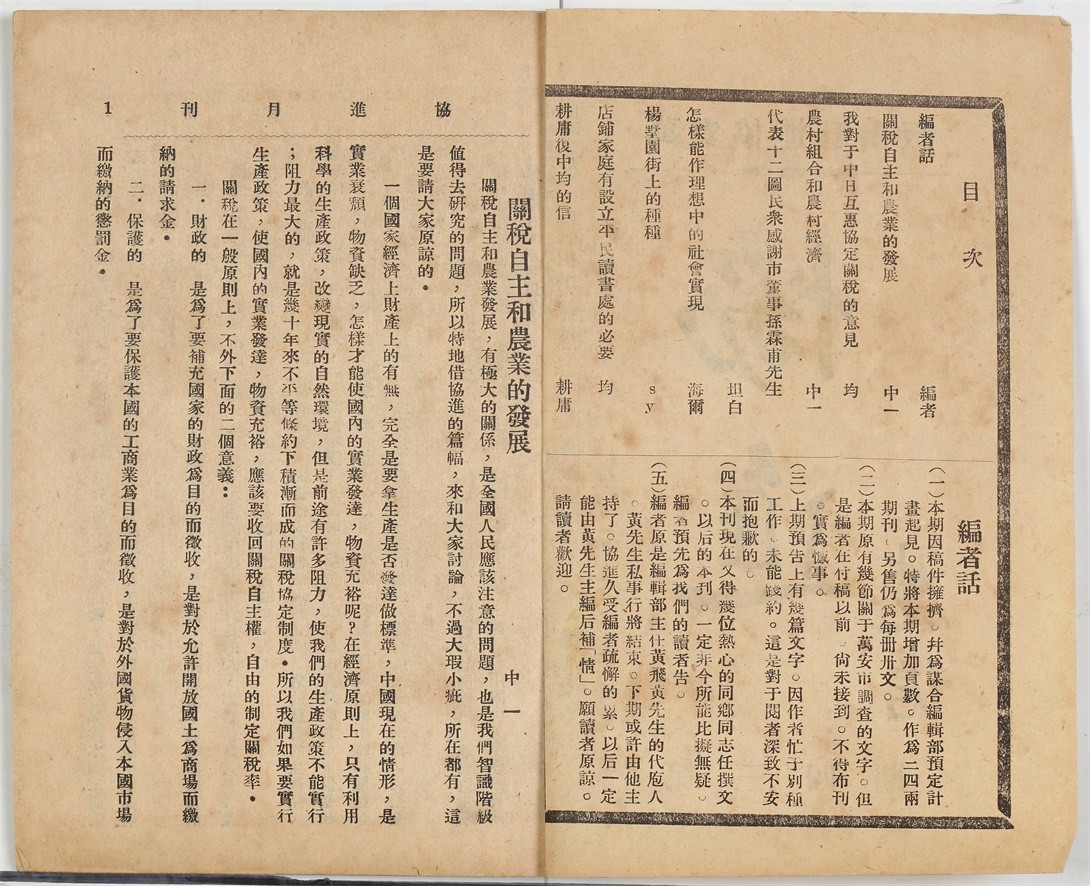 目次
編者話　編者
關稅自主和農業的發展　中一
我對于中日互惠協定關稅的意見　均
農村組合和農村經濟　中一
代表十二圖民衆感謝市董事孫霖甫先生
坦白
怎樣能作理想中的社會實現　海爾
楊墅園街上的種種　sy
店鋪家庭有設立平民讀書處的必要　均
耕庸復中均的信　耕庸
編者話
(一)本期因稿件擁擠。幷爲謀合編輯部預定計
畫起見。特將本期增加頁數。作爲二四兩
期刊。另售仍爲每册卅文。
(二)本期原有幾節關于萬安市調查的文字。但
是編者在付稿以前。尙未接到。不得布刊
。實爲憾事。
(三)上期預告上有幾篇文字。因作者忙于別種
工作。未能踐約。這是對于閱者深致不安
而抱歉的。
(四)本刊現在又得幾位熱心的同鄉同志任撰文
。以后的本刊。一定非今所能比擬無疑。
編者預先爲我們的讀者告。
(五)編者原是編輯部主任黃飛黃先生的代庖人
。黃先生私事行將結束。下期或許由他主
持了。協進久受編者疏懈的累。以后一定
能由黃先生主編后補「情」。願讀者原諒。
請讀者歡迎。
協進月刊　1
關稅自主和農業的發展　中一
關稅自主和農業發展，有極大的關係，是全國人民應該注意的問題，也是我們智識階級
値得去研究的問題，所以特地借協進的篇幅，來和大家討論，不過大瑕小疵，所在都有，這
是要請大家原諒的。
一個國家經濟上財產上的有無，完全是要拿生產是否發達做標準，中國現在的情形，是
實業衰頹，物資缺乏，怎樣才能使國內的實業發達，物資充裕呢？在經濟原則上，只有利用
科學的生產政策，改變現實的自然環境，但是前途有許多阻力，使我們的生產政策不能實行
；阻力最大的，就是幾十年來不平等條約下積漸而成的關稅協定制度。所以我們如果要實行
生產政策，使國內的實業發達，物資充裕，應該要收回關稅自主權，自由的制定關稅率。
關稅在一般原則上，不外下面的二個意義：
一．財政的　是爲了要補充國家的財政爲目的而徵收，是對於允許開放國土爲商場而繳
納的請求金。
二．保護的　是爲了要保護本國的工商業爲目的而徵收，是對於外國貨物侵入本國市場
而繳納的懲罰金。